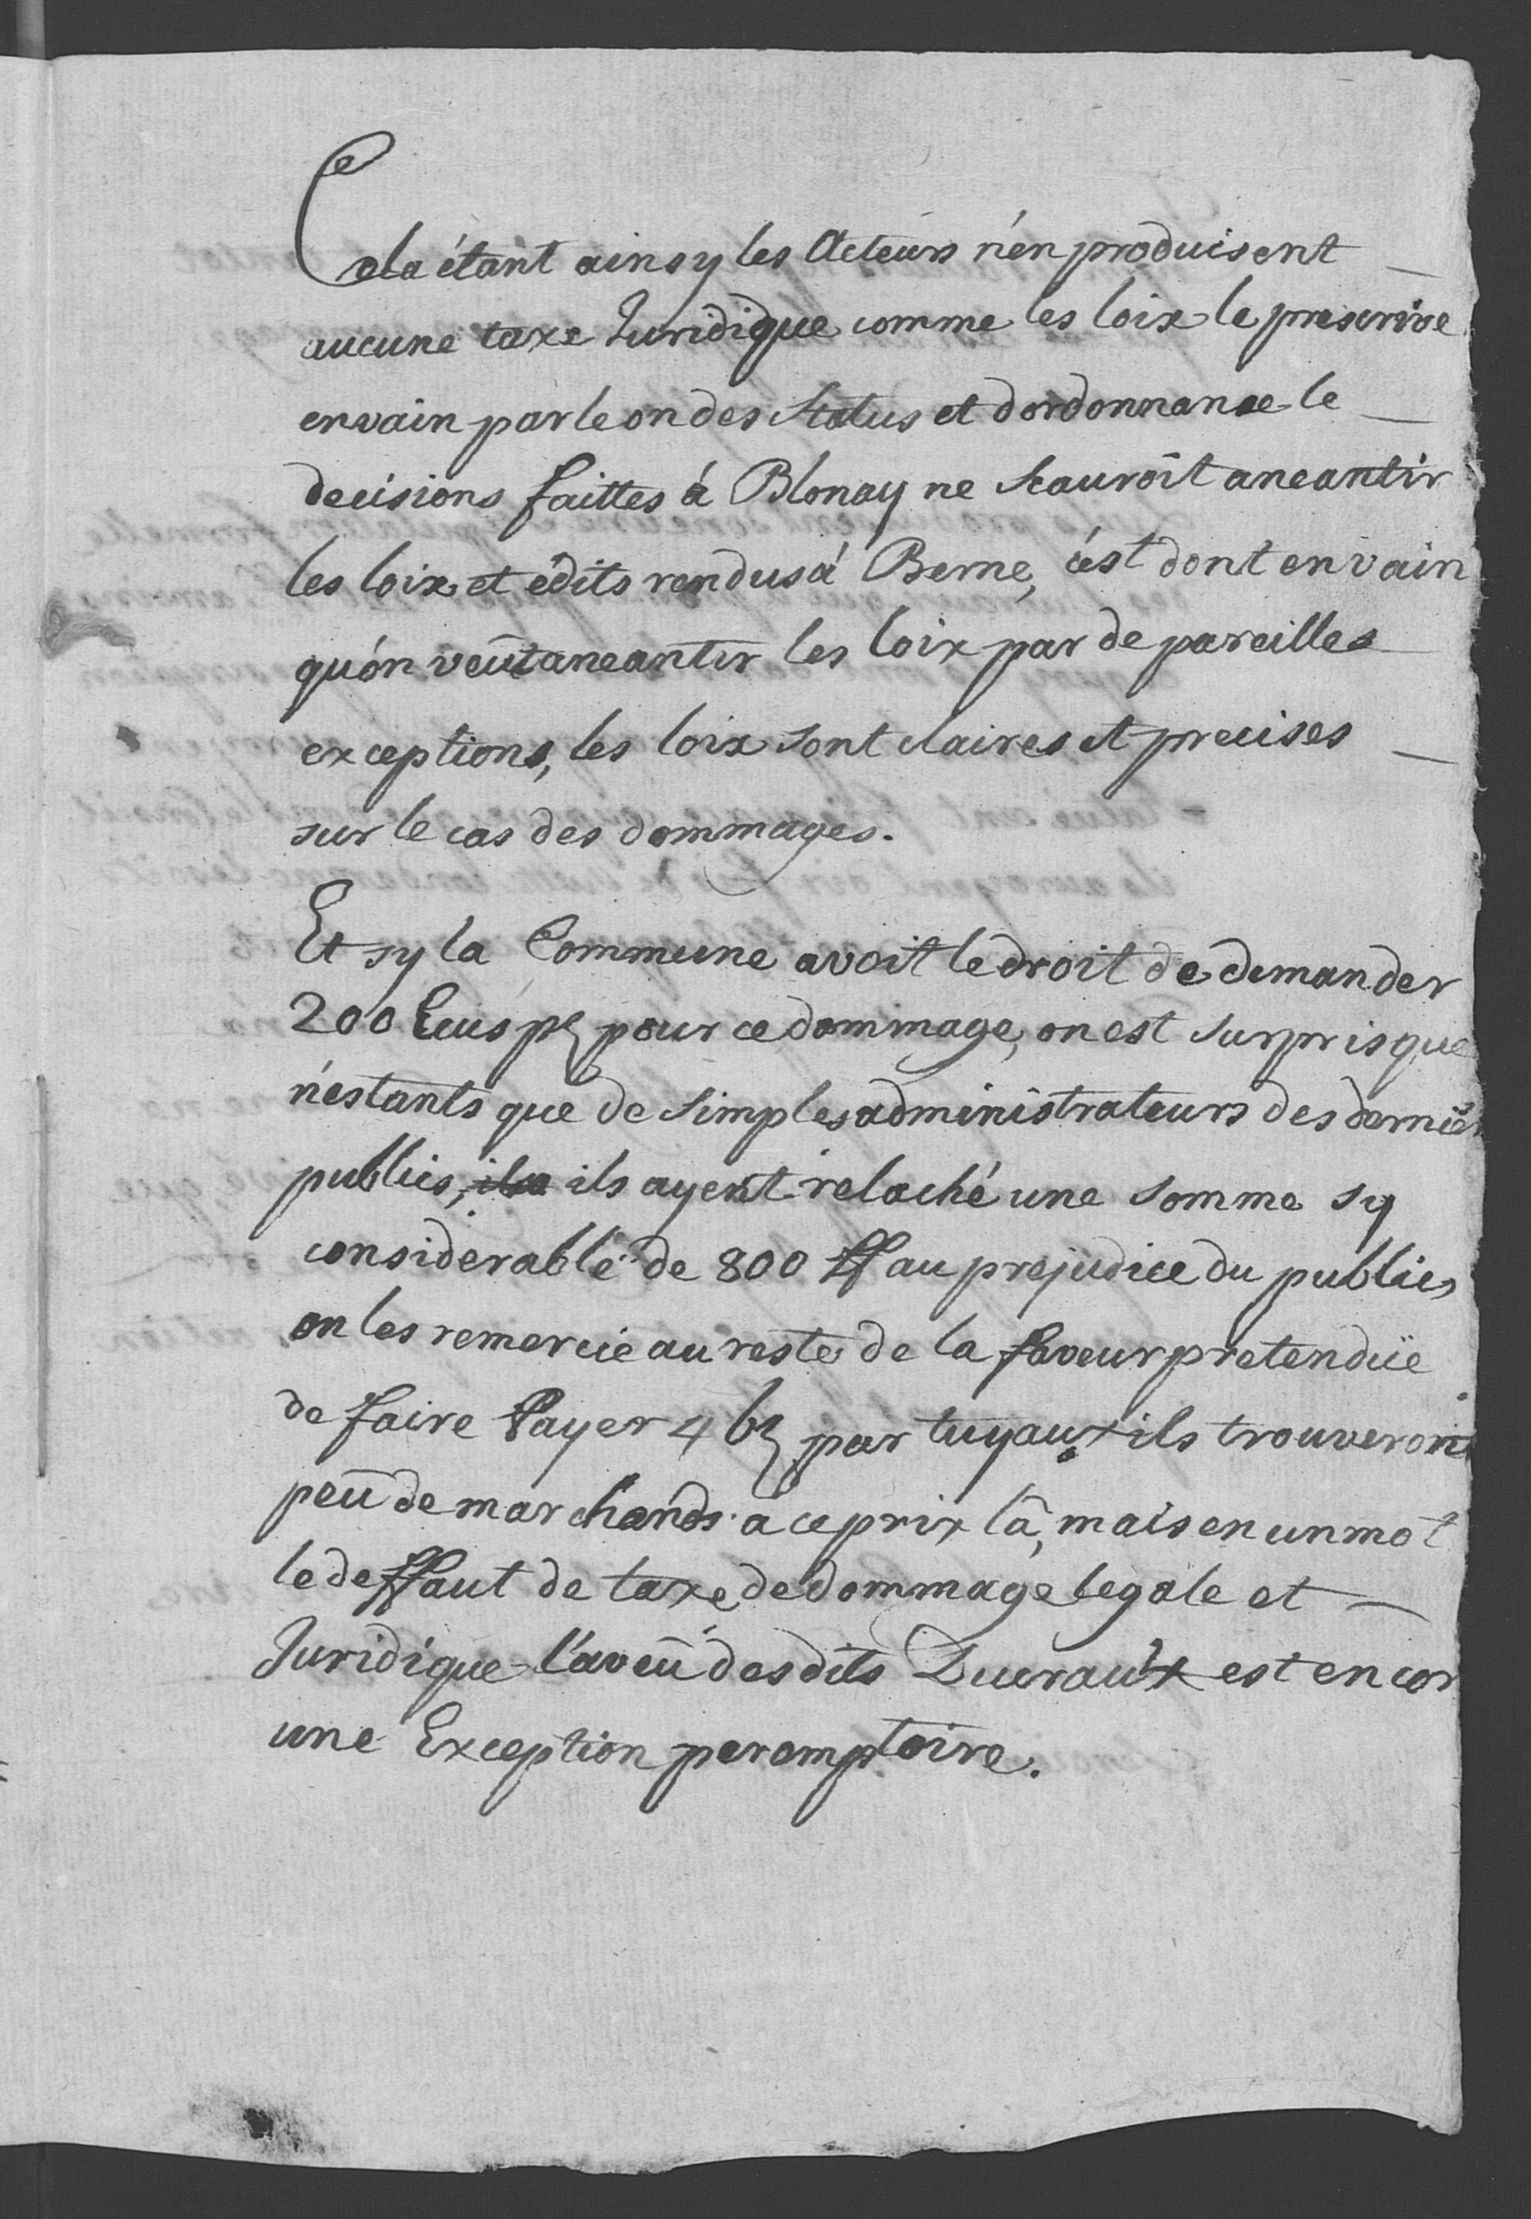 Cela étant ainsy les Acteurs n'en produisent
aucune taxe Juridique comme les loix le prescrive
envain parle on des Status et dordonnance le
decisions faittes á Blonay ne scauroit aneantir
les loix et édits rendus á Berne, c'est dont en vain
qu'on veût aneantir les loix par de pareilles
exceptions, les loix sont claires et precises
sur le cas des dommages.
Et sy la Commune avoit le droit de demander
200 Ecus pour ce dommage, on est surpris que
n'estants que de simples administrateurs des
publics, ils ils ayent relaché une somme sy
considerable de 800 ff au prejudice du public,
on les remercie au reste de la faveur pretendüe
de faire Payer 4 bz par tuyaux ils trouveront
peû de marchands a ce prix lâ, mais en un mot
le deffaut de taxe de dommage legale et
Juridique l'aveû desdits Ducraux est encor
une Exception peremptoire.